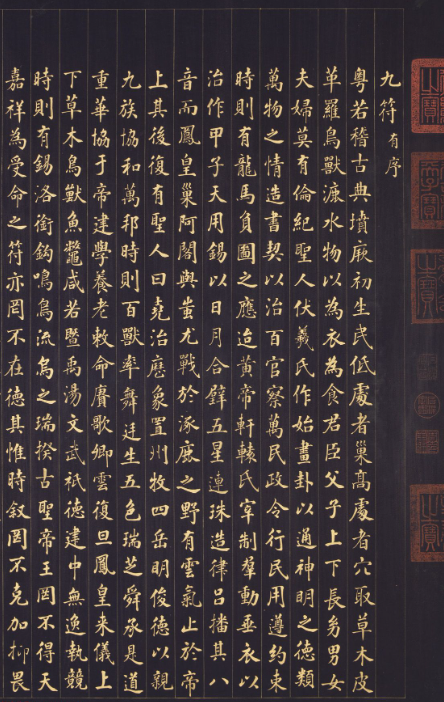 九符有序
粵若稽古典墳厥初生民低處者巢髙處者穴取草木皮
革羅鳥獸漉水物以為衣為食君臣父子上下長㓜男女
夫婦莫有倫紀聖人伏羲氏作始畫卦以通神明之徳類
萬物之情造書契以治百官察萬民政令行民用遵約束
時則有龍馬負圖之應迨黄帝軒轅氏宰制羣動垂衣以
治作甲子天用錫以日月合璧五星連珠造律吕播其八
音而鳳皇巢阿閣與蚩尤戰於涿鹿之野有雲氣止於帝
上其後復有聖人曰堯治歴象置州牧四岳明俊徳以親
九族協和萬邦時則百獸率舞廷生五色瑞芝舜承是道
重華協于帝建學養老敕命賡歌卿雲復旦鳳皇来儀上
下草木鳥獸魚鼈咸若曁禹湯文武祇徳建中無逸執競
時則有錫洛銜鈎鳴鳥流烏之瑞揆古聖帝王罔不得天
嘉祥為受命之符亦罔不在徳其惟時叙罔不克加抑畏